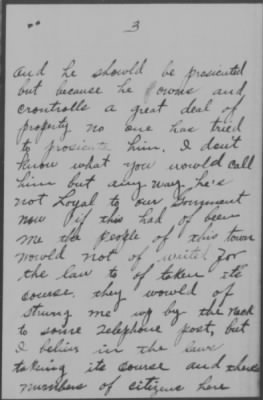 3
and he should be prosicuted
but because he owns and
crontrolls a great deal of
property no one has tried
to prosicute him. I dont
know what you would call
him but any way he's
not Loyal to our Goverment
now if this had of been
me the people of this town
would not of waited for
the law to of taken its
course. they would of
strung me up by the neck
to some telephone post, but
I believe in the laws
taking its course and there
numbers of citizens here